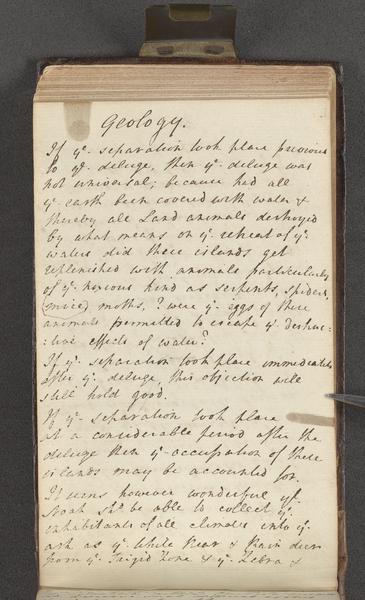 Geology.
If ye. separation took place previous
to ye. deluge, then ye. deluge was
not universal; because had all
ye. earth been covered with water &
thereby all Land animals destroyed
by what means on ye. retreat of ye.
waters did these islands get
replenished with animals particularly
of ye. noxious kind as serpents, spiders,
(mice) moths, ? were ye. eggs of these
animals permitted to escape ye. destruc=
=tive effects of water?
If ye. separation took place immediately
after ye. deluge, this objection will
still hold good.
If ye. separation took place
at a considerable period after the
deluge then ye. occupation of these
islands may be accounted for.
It seems however wonderful yt.
Noah shd. be able to collect ye.
inhabitants of all climates into ye.
ark as ye. White Bear & Rain deer
from ye. Frigid Zone & ye. Zebra &